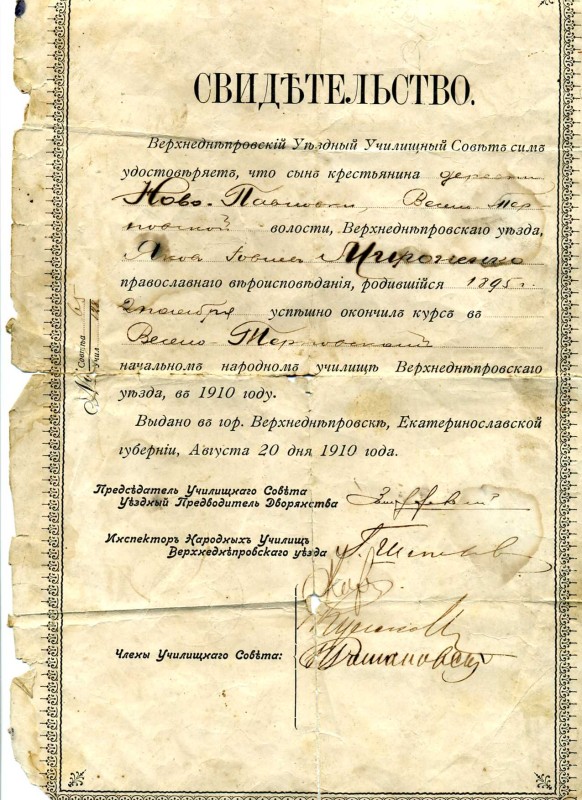 СВИДѢТЕЛЬСТВО.
Верхнеднѣпровскій Уѣздный Училищный Совѣтъ симъ
удостовѣряетъ, что сынъ крестьянина деревни
Ново-Павловки Весело-Тер
новской волости, Верхнеднѣпровскаго уѣзда,
Яковъ Мироненко
православнаго вѣроисповѣданія, родившійся 1895 г.
2 ноября успѣшно окончилъ курсъ въ
Весело-Терновской
начальномъ народномъ училищѣ Верхнеднѣпровскаго
уѣзда, въ 1910 году.
Выдано въ гор. Верхнеднѣпровскѣ, Екатеринославской
губерніи, Августа 20 дня 1910 года.
Предсѣдатель Училищнаго Совѣта
Уѣздный Предводитель Дворянства
Инспекторъ Народныхъ Училищъ
Верхнеднѣпровскаго уѣзда
Члены Училищнаго Совѣта:
№ Совѣта
учил.